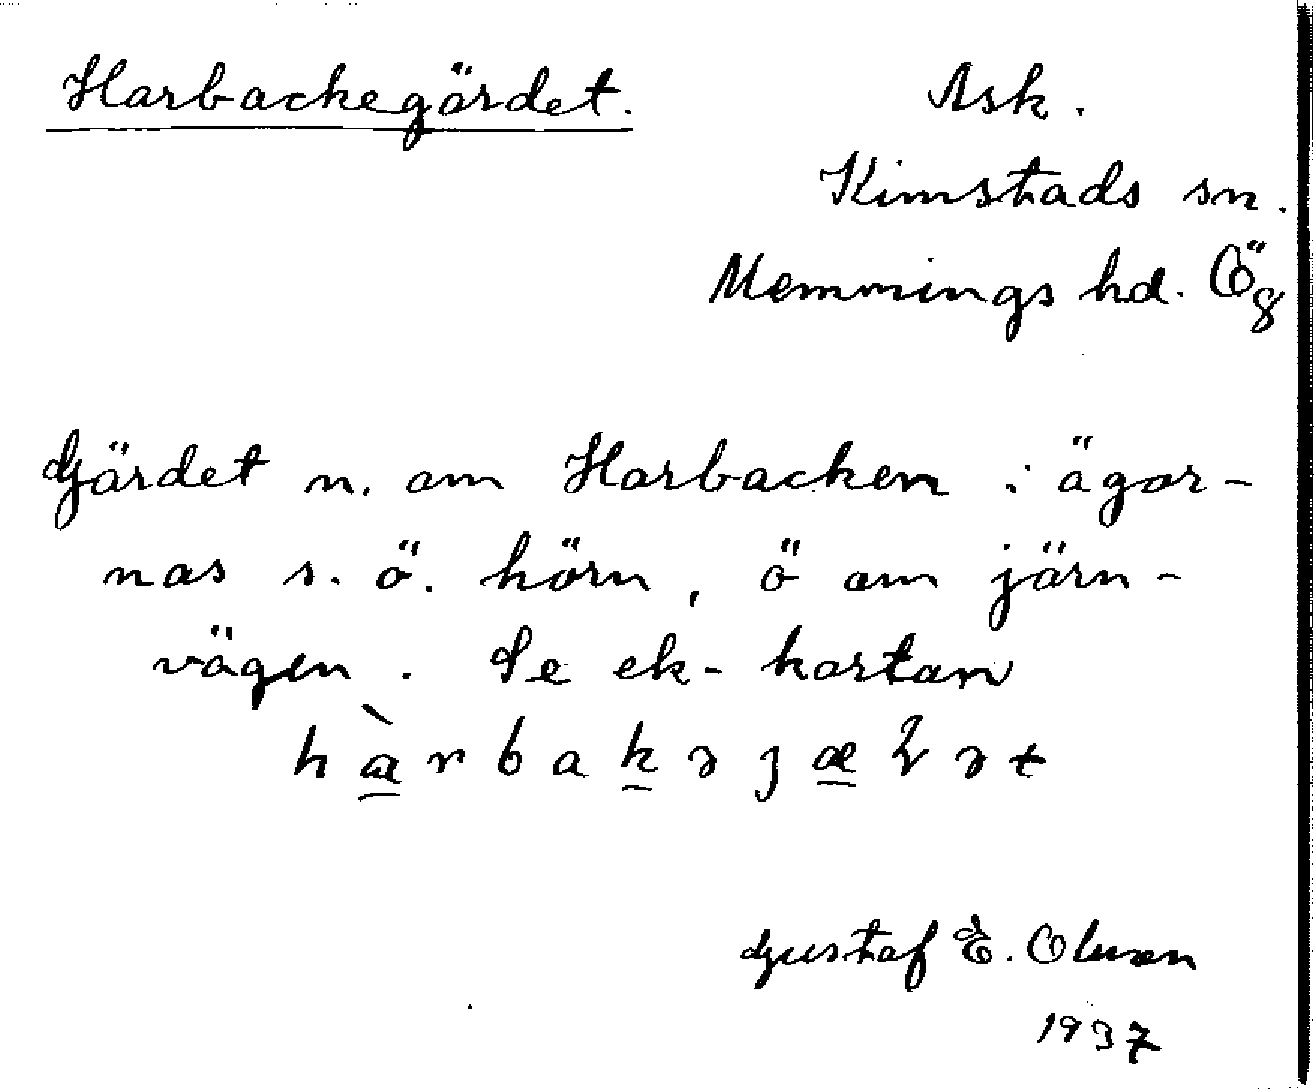 Harbackegärdet.
Ask.
Kimstads sn.
Memmings hd. Ög
Gärdet n. om Harbacken i ägor-
nas s. ö. hörn, ö om järn-
vägen. Se ek-kartan
Gustaf E. Olsson
1937